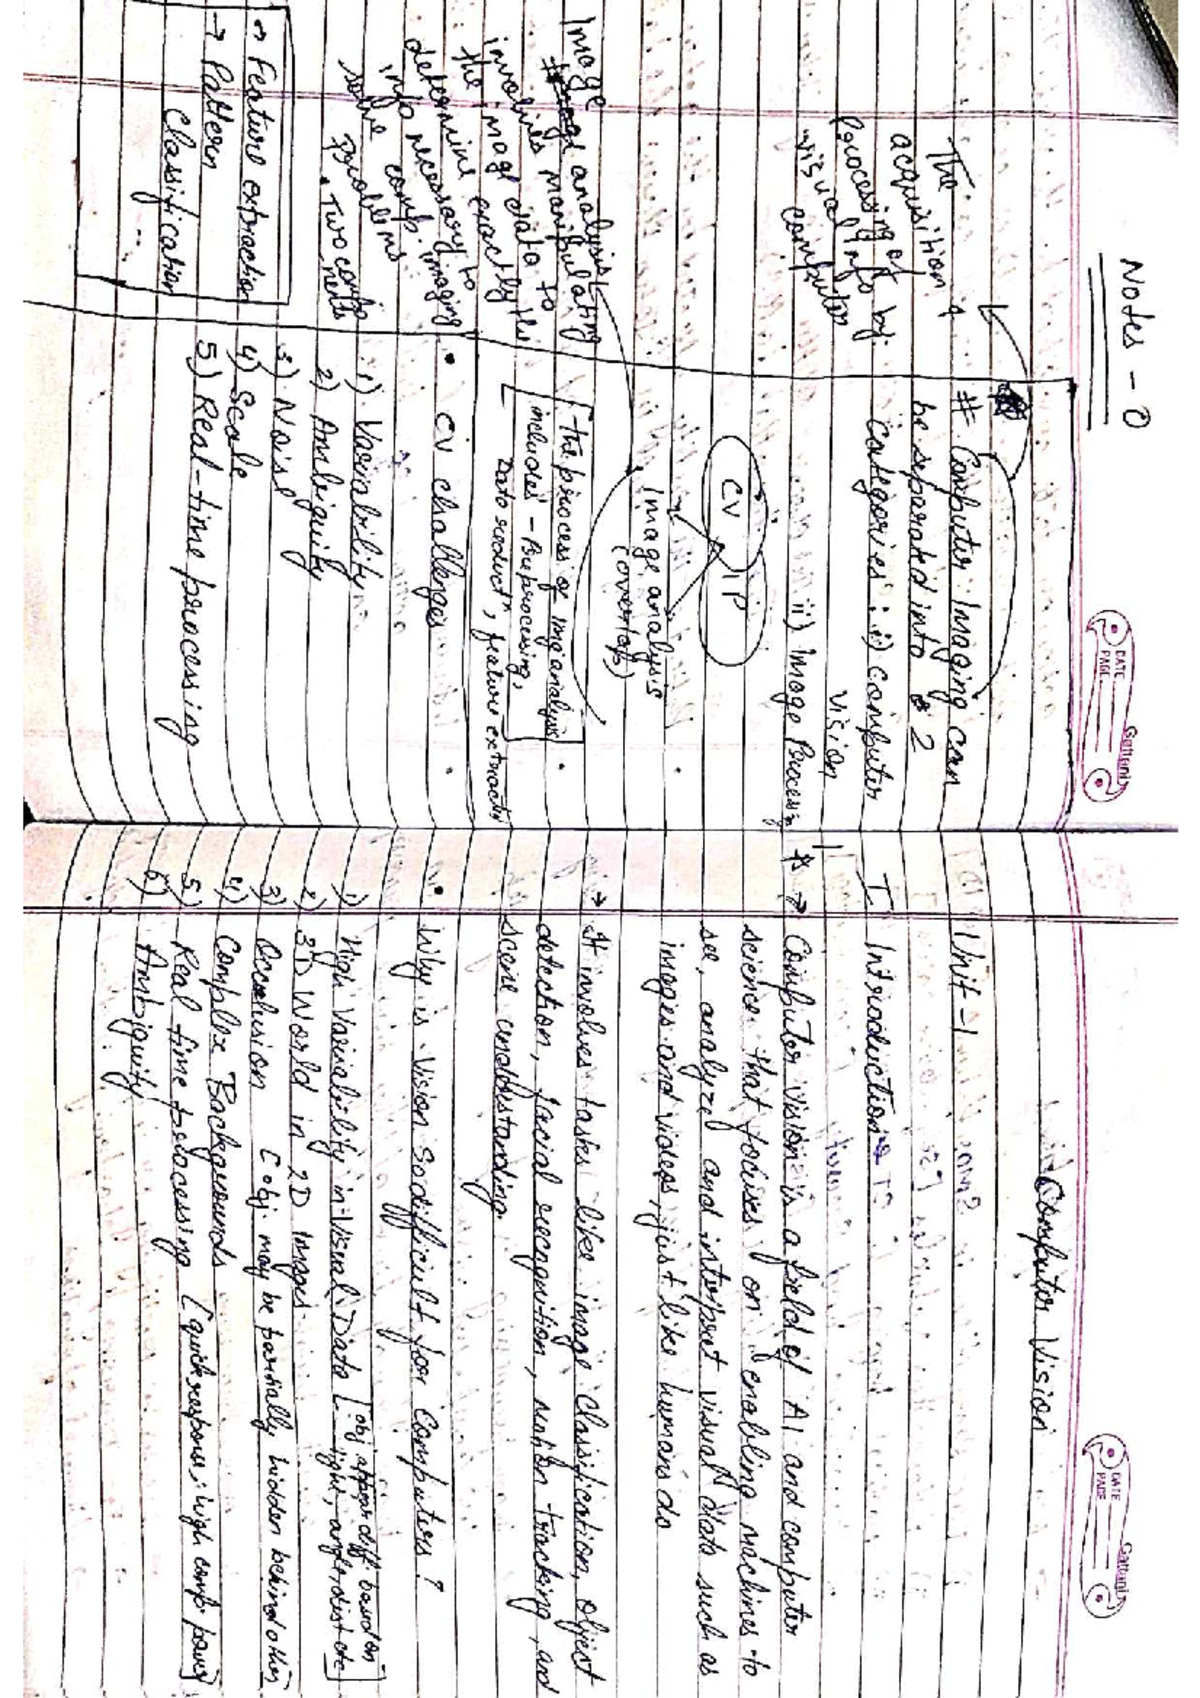 Notes - 0
DATE
PAGE
Gattani
The acquisition &
processing of
visual info by
computer
# Computer Imaging can
be separated into 2
categories : i) computer
vision
ii) Image Processing
CV
IP
Image analysis
(overlap)
Image analysis
involves manipulating
the image data to
determine exactly the
info necessary to
solve comp. imaging
problems
• Two components
→ Feature extraction
→ Pattern
Classification
- the process of img analysis
includes - Preprocessing,
Data reductn, feature extractn
• CV challenges
1) Variability
2) Ambiguity
3) Noise
4) Scale
5) Real-time processing
Computer Vision
DATE
PAGE
Gattani
Unit-1
I. Introduction
→ Computer vision is a field of AI and computer
science that focuses on enabling machines to
see, analyze and interpret visual data such as
images and videos, just like humans do
→ It involves tasks like image classification, object
detection, facial recognition, motion tracking, and
scene understanding.
• Why is Vision so difficult for Computers?
1) High Variability in Visual Data [obj appear diff based on
light, angle, dist etc]
2) 3D World in 2D Images
3) Occlusion [obj. may be partially hidden behind other]
4) Complex Backgrounds
5) Real time processing [quick response, high comp. power]
6) Ambiguity